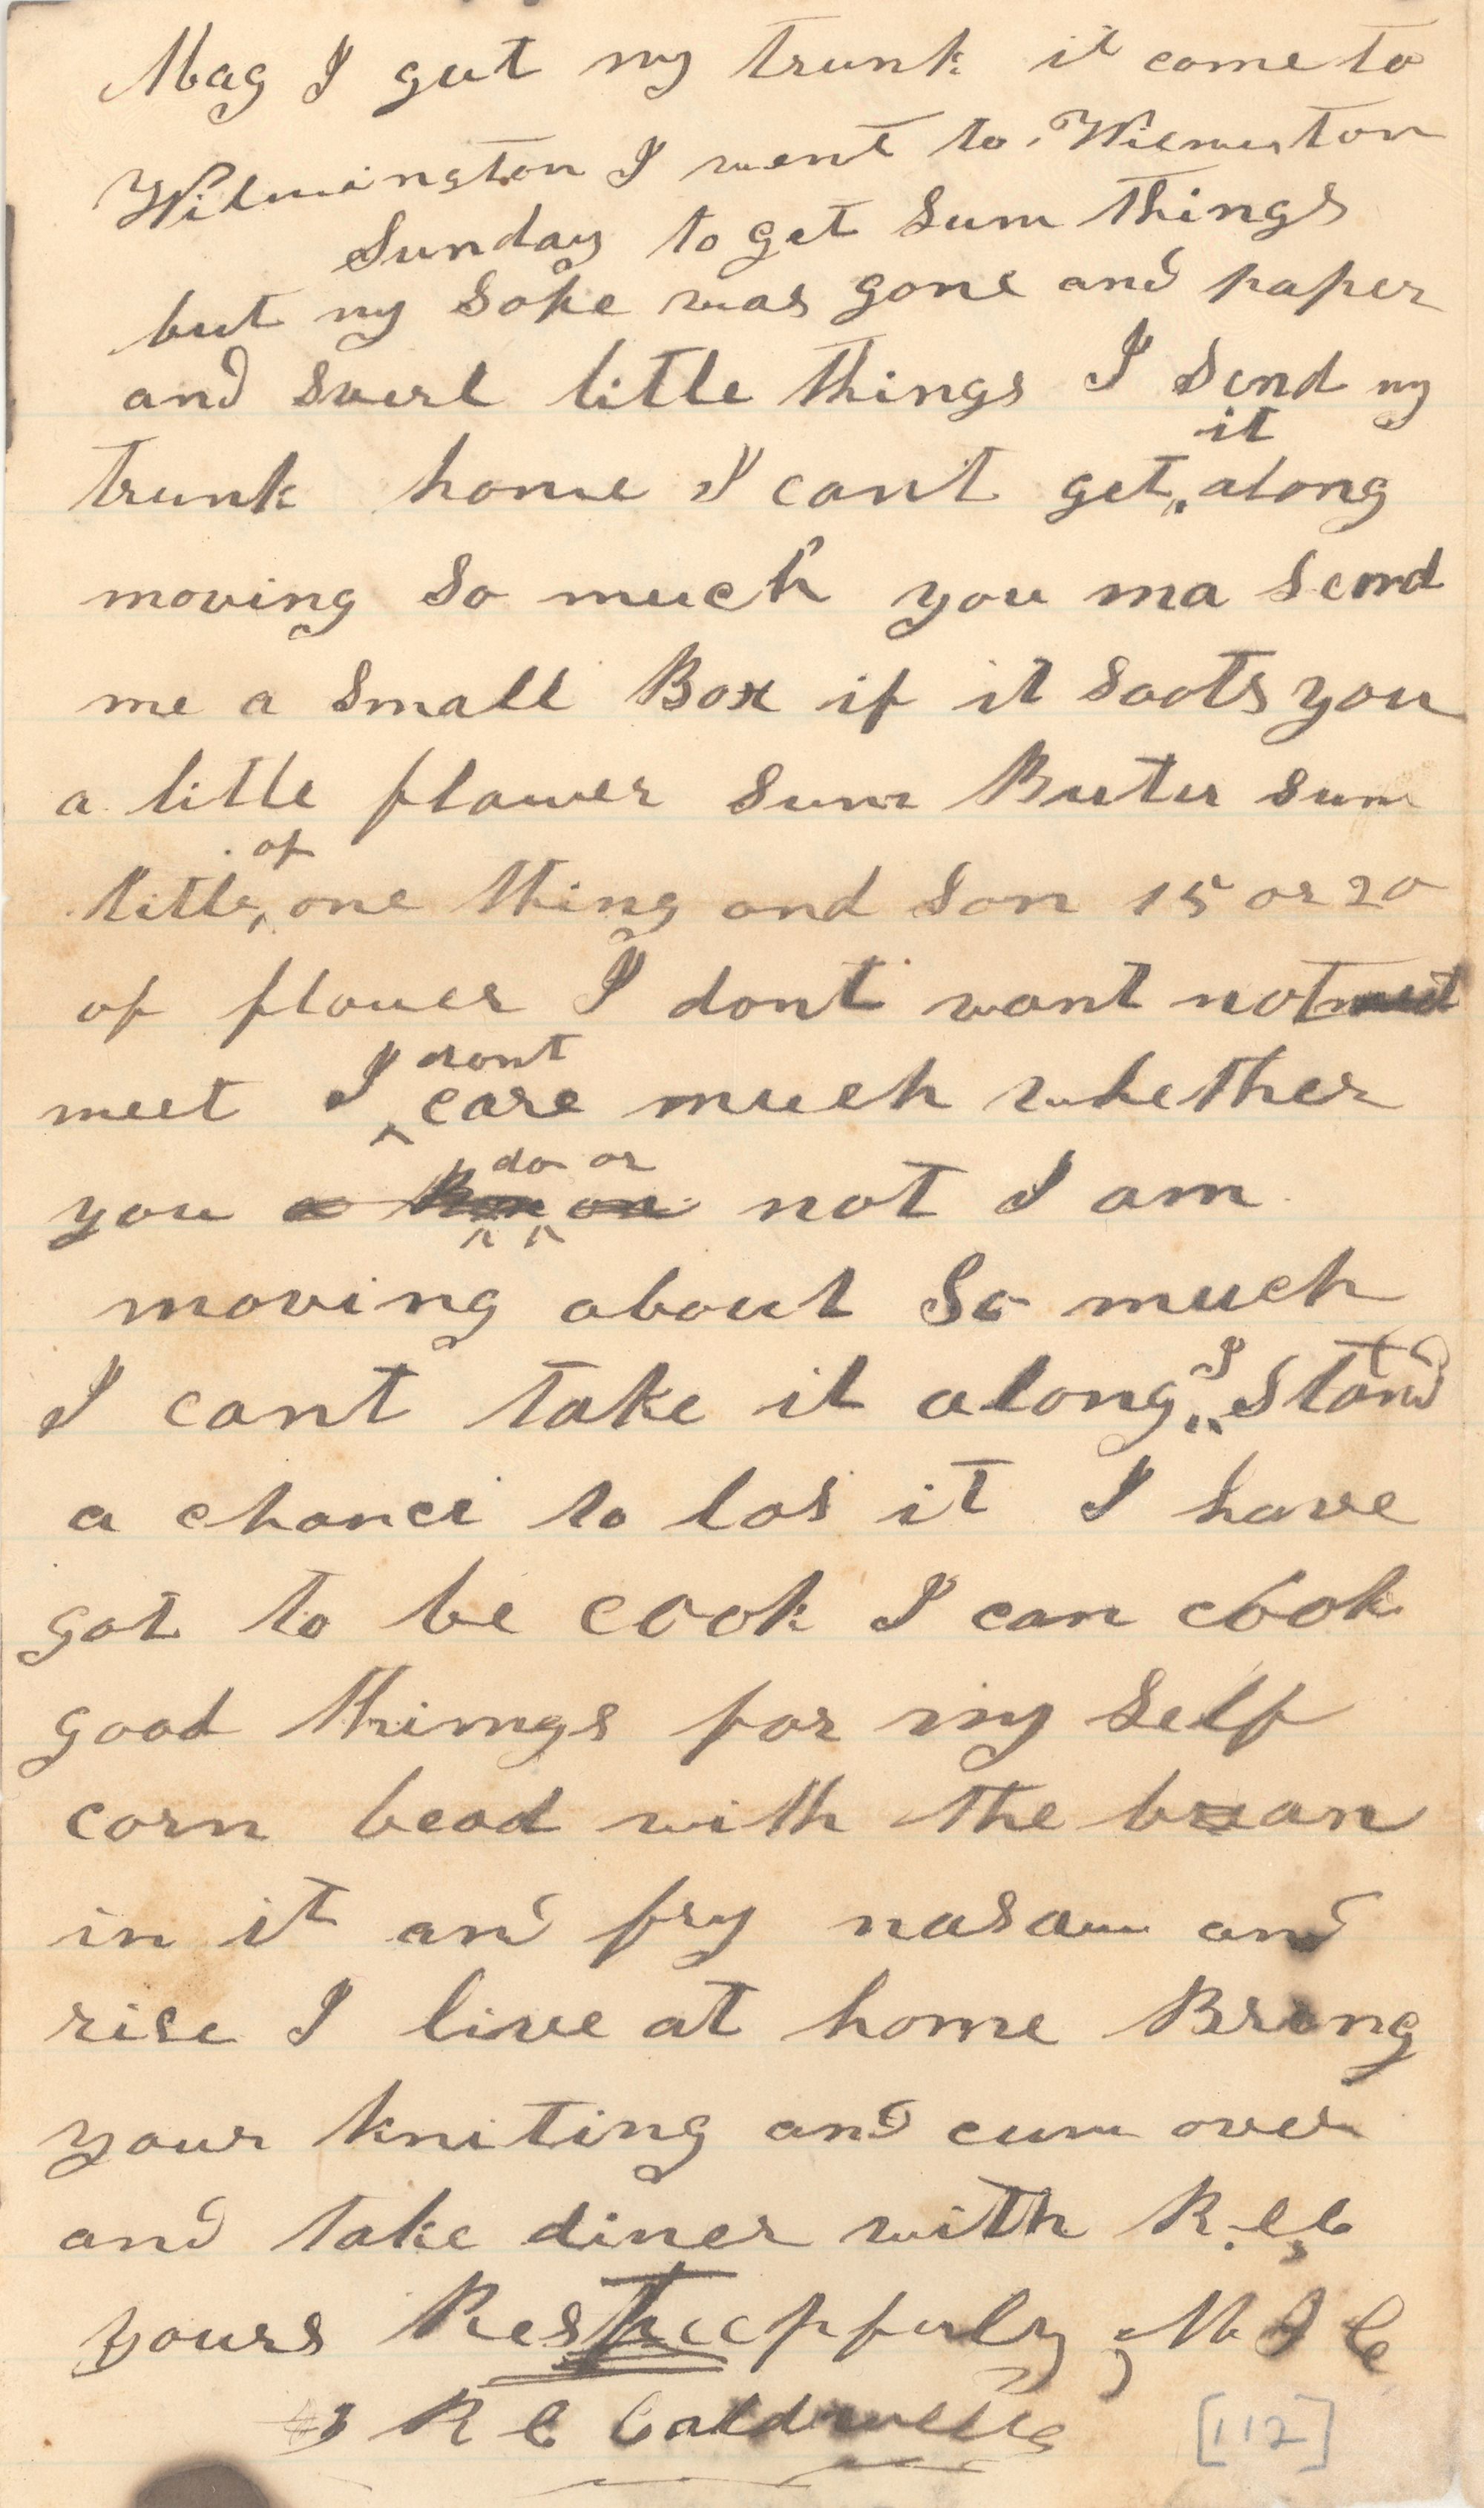 Mag I gut my trunk it come to
Wilmington I went to Wilmington
Sunday to get Sum things
but my Sope was gone and paper
and Sverl little things I Send my
trunk home I cant get it along
moving So much you ma Send
me a Small Box if it Soots you
a little flower Sum Buter Sum
little of one thing and Son 15 or 20
of flouer I dont want not
meet I dont care much whether
you do or not I am
moving about So much
I cant take it along I Stand
a chance to los it I have
got to be cook I can cook
good thimgs for my Self
corn bead with the bran
in it and fry nasau and
rise I live at home Bring
your kniting and cum over
and take diner with R. C. C
yours Respecpfuly, M J C
R C Caldwell
[112]